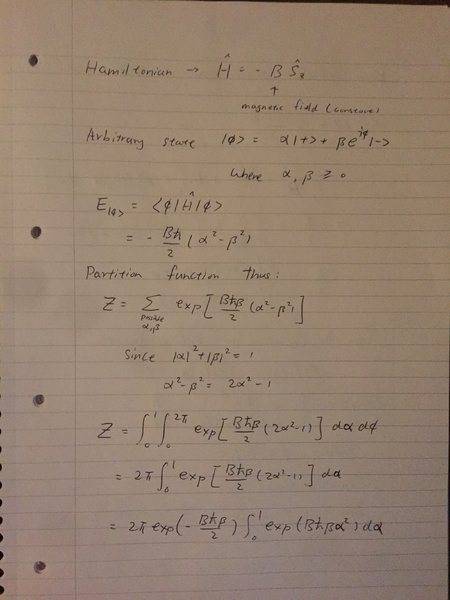 Hamiltonian → Ĥ = - B Ŝz
↑
magnetic field (constant)
Arbitrary state |ϕ> = α|+> + βe^{iϕ}|->
where α, β ≥ 0
E|ϕ> = <ϕ|Ĥ|ϕ>
= - Bħ/2 (α² - β²)
Partition function thus:
Z = Σ exp[Bħβ/2 (α² - β²)]
possible
α, β
Since |α|² + |β|² = 1
α² - β² = 2α² - 1
Z = ∫₀¹ ∫₀^{2π} exp[Bħβ/2 (2α² - 1)] dα dϕ
= 2π ∫₀¹ exp[Bħβ/2 (2α² - 1)] dα
= 2π exp(- Bħβ/2) ∫₀¹ exp(Bħβα²) dα